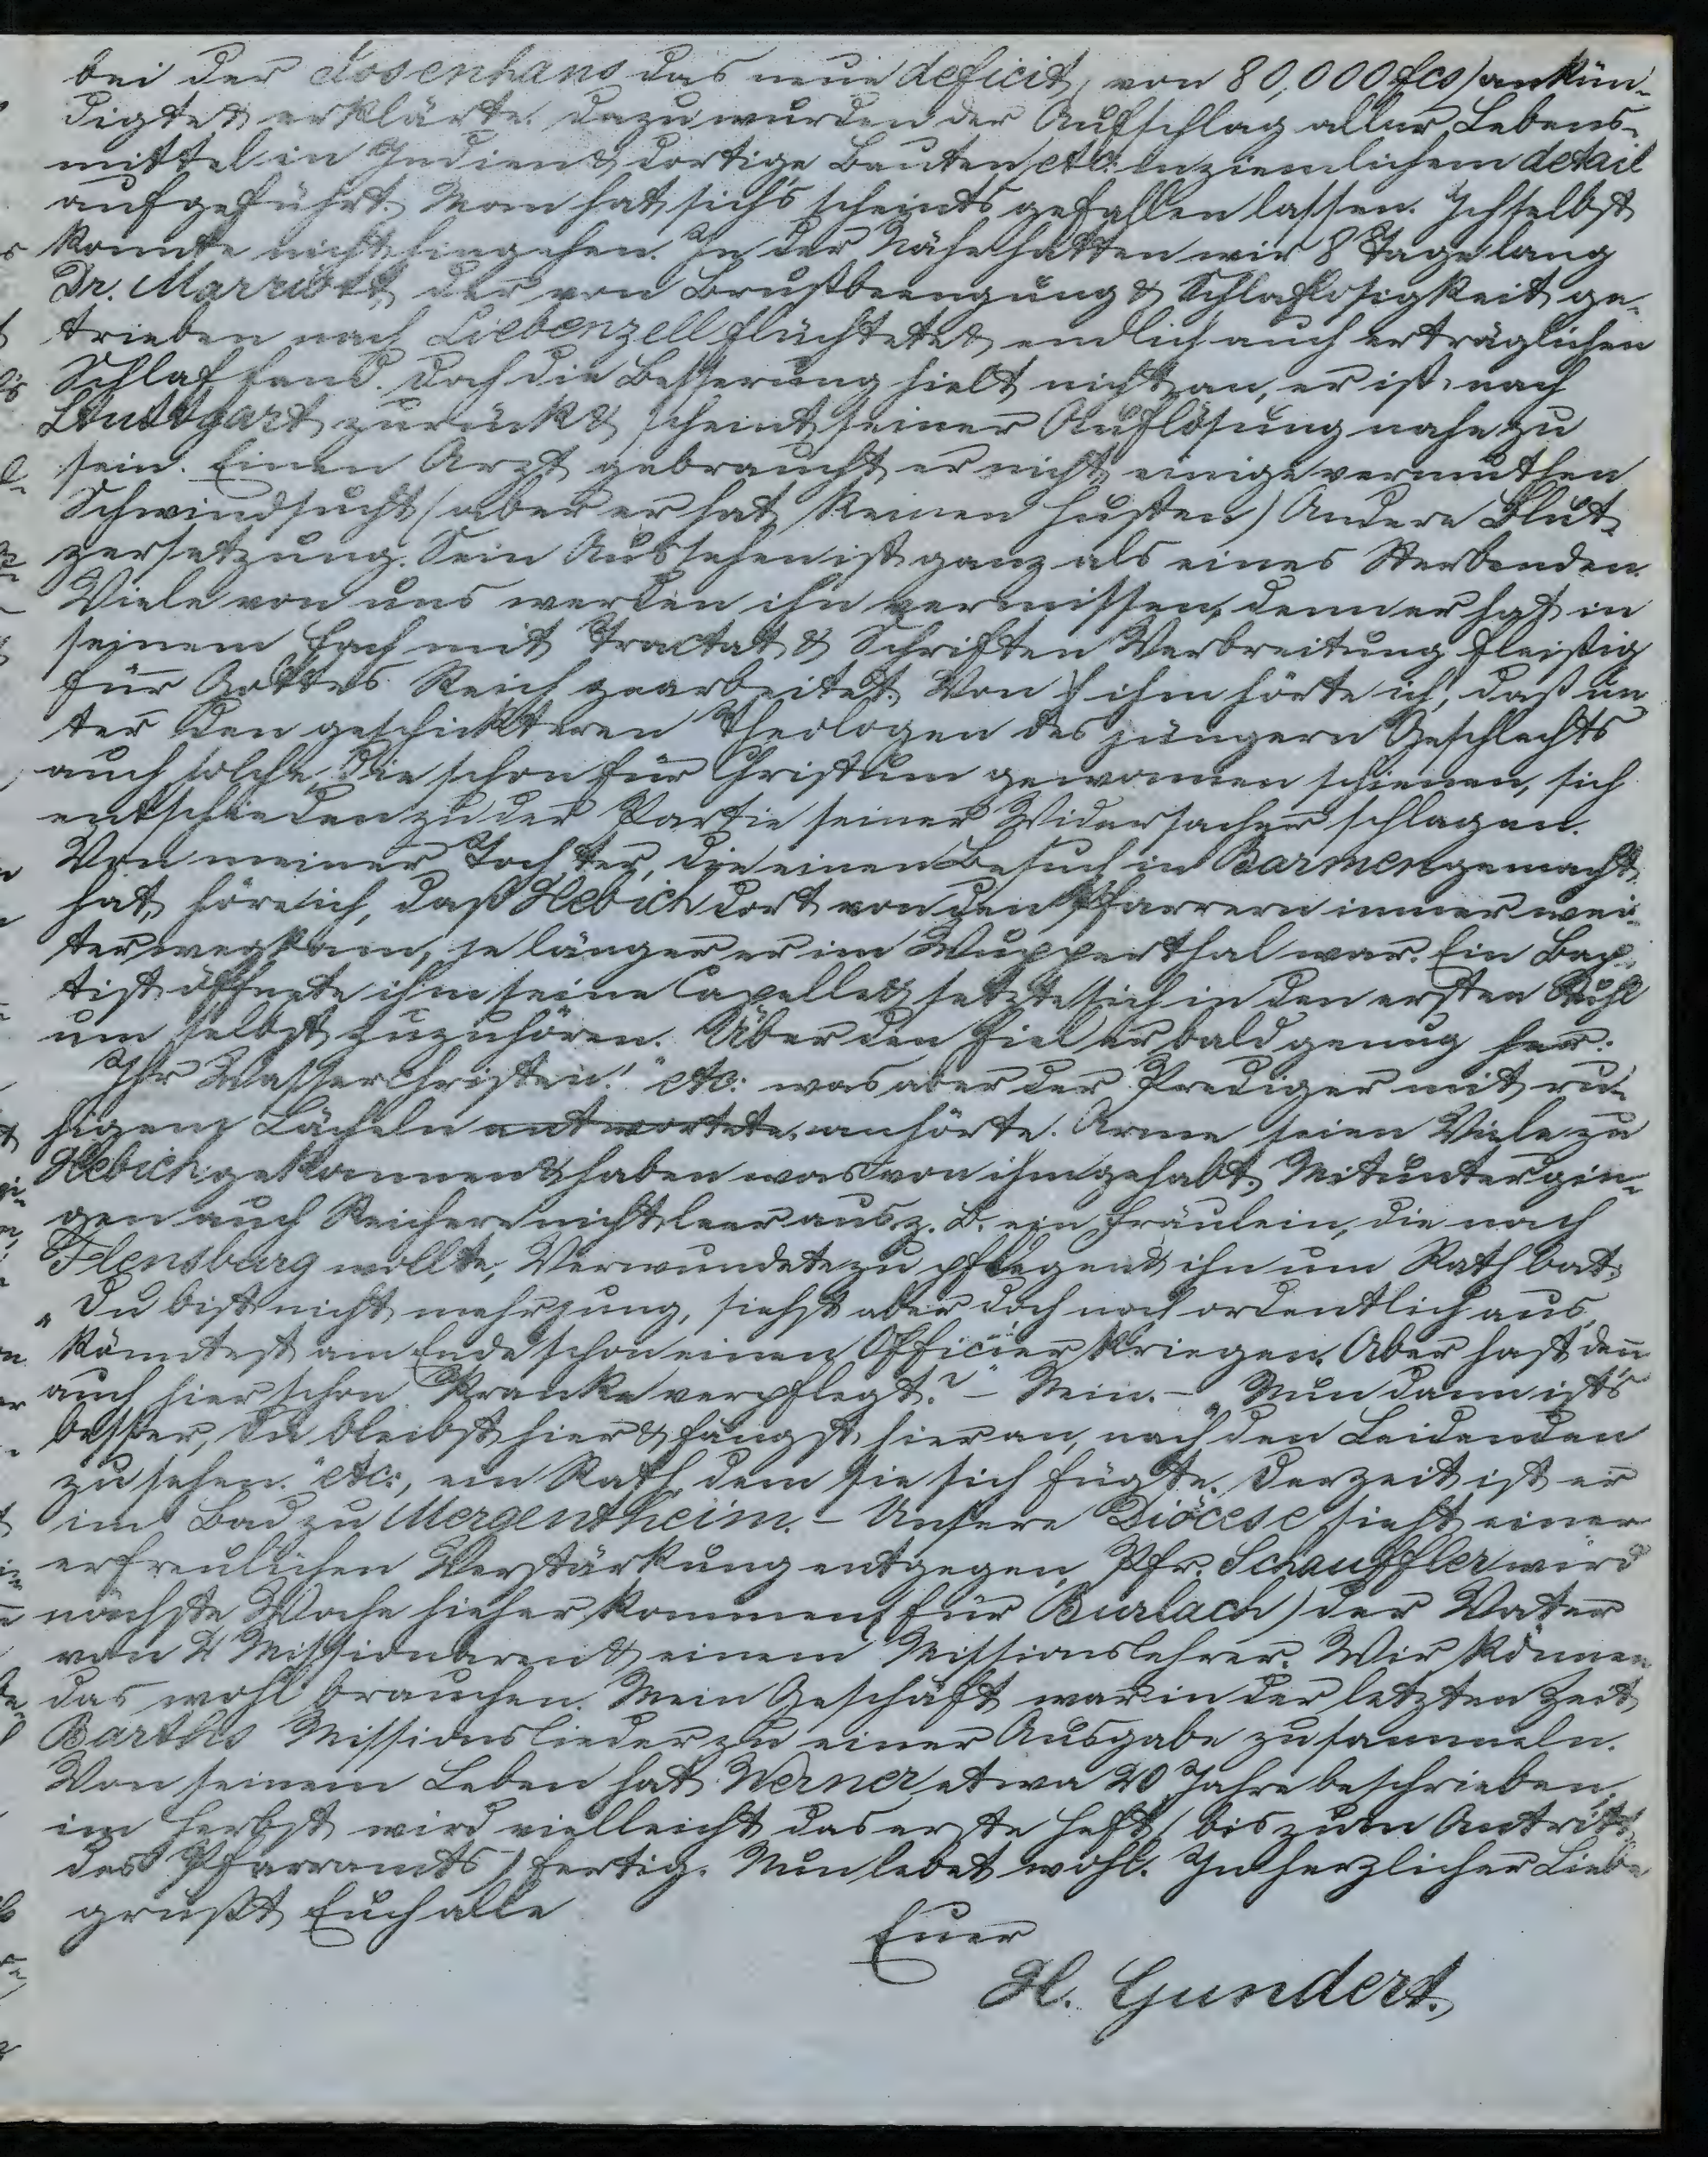 bei der Josenhans das neue deficit, von 80,000 fcs) ankün-
digte & erklärte. Dazu wurden der Aufschlag aller Lebens-
mittel in Indien & dortige Bauten etc. in ziemlichem detail
aufgeführt. Man hat sich's scheint's gefallen lassen. Ich selbst
konnte nicht hingehen. In der Nähe hatten wir 8 Tage lang
Dr. Marriott, der von Brustbeengung & Schlaflosigkeit ge-
trieben nach Liebenzell flüchtete & endlich auch erträglichen
Schlaf fand. Doch die Besserung hielt nicht an, er ist nach
Stuttgart zurück & scheint seiner Auflösung nahe zu
sein. Einen Arzt gebraucht er nicht, einige vermuthen
Schwindsucht (aber er hat keinen Husten) Andere Blut-
zersetzung. Sein Aussehen ist ganz als eines Sterbenden.
Viele von uns werden ihn vermissen, denn er hat in
seinem Fach mit Tractat & Schriften Verbreitung fleißig
für Gottes Reich gearbeitet. Von ihm hörte ich, daß un-
ter den geschickteren Theologen des jüngern Geschlechts
auch solche, die schon für Christum gewonnen schienen, sich
entschieden zu der Partie seiner Widersacher schlagen.
Von meiner Tochter, die einen Besuch in Barmen gemacht
hat, höre ich, daß Hebich dort von den Pfarrern immer wei-
ter wegkam, je länger er im Wupperthal war. Ein Bap-
tist öffnete ihm seine Capelle & setzte sich in den ersten Stuhl
um selbst zuzuhören. Über den fiel er bald genug her:
"Ihr Wasserchristen!" etc. was aber der Prediger mit ru-
higem Lächeln antwortete. anhörte. Arme seien Viele zu
Hebich gekommen & haben was von ihm gehabt. Mitunter gin-
gen auch Reichere nicht leer aus, z. B. ein Fräulein, die nach
Flensburg wollte, Verwundete zu pflegen & ihn um Rath bat:
"Du bist nicht mehr jung, siehst aber doch noch ordentlich aus,
könntest am Ende schon einen Officier kriegen. Aber hast denn
auch hier schon Kranke verpflegt?" – Nein. – "Nun dann ist's
besser, Du bleibst hier & fangst hier an, nach den Leidenden
zu sehen." etc., ein Rath dem sie sich fügte. Derzeit ist er
im Bad zu Mergentheim. – Unsere Diöcese sieht einer
erfreulichen Verstärkung entgegen, Pfr. Schauffler wird
nächste Woche hieher kommen (für Burlach) der Vater
von 2 Missionaren & einem Missionslehrer. Wir können
das wohl brauchen. Mein Geschäft war in der letzten Zeit
Barths Missionslieder zu einer Ausgabe zu sammeln.
Von seinem Leben hat Werner etwa 20 Jahre beschrieben,
im Herbst wird vielleicht das erste Heft (bis zum Antritt
des Pfarramts) fertig. Nun lebet wohl. In herzlicher Liebe
grüßt Euch alle
Euer
H. Gundert.